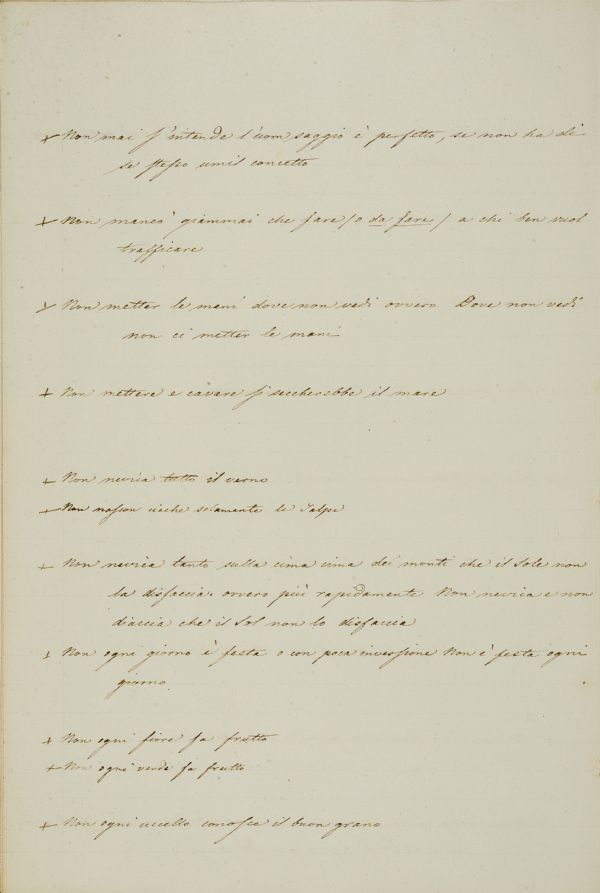 + Non mai s'intende l'uom saggio è perfetto, se non ha di
se stesso umil concetto
+ Non mancò giammai che fare (o da fare) a chi ben vuol
trafficare
+ Non metter le mani dove non vedi ovvero Dove non vedi
non ci metter le mani
+ Non mettere e cavare si seccherebbe il mare
+ Non nevica tutto il verno
+ Non nascon cieche solamente le Talpe
+ Non nevica tanto sulla cima cima dei monti che il Sole non
la disfaccia. ovvero più rapidamente Non nevica e non
diaccia che il Sol non lo disfaccia
+ Non ogni giorno è festa o con poca inversione Non è festa ogni
giorno.
+ Non ogni fiore fa frutto
+ Non ogni verde fa frutto
+ Non ogni uccello conosce il buon grano